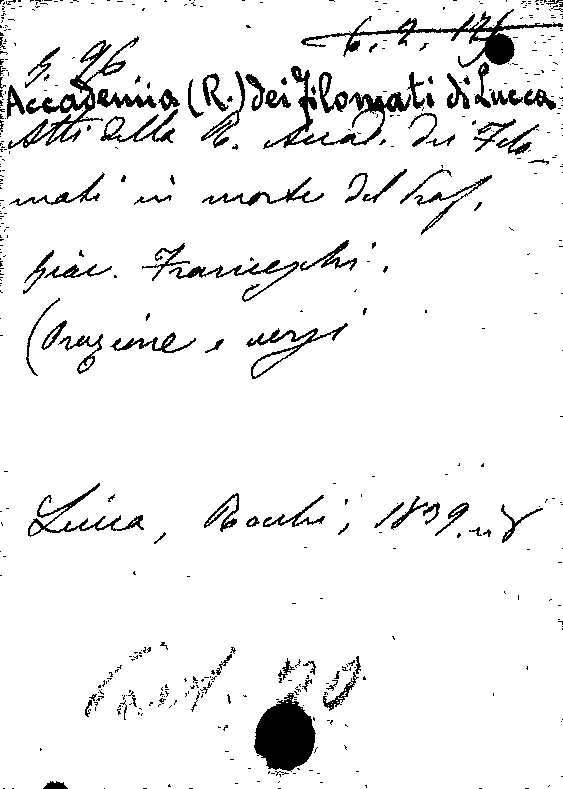 6. 2. 17
G. 96
Accademia (R.) dei Filomati di Lucca
Atti della R. Accad. dei Filo-
mati in morte del Prof.
Giac. Franceschi.
(Orazione e versi
Lucca, Rocchi, 1839. in 8
20